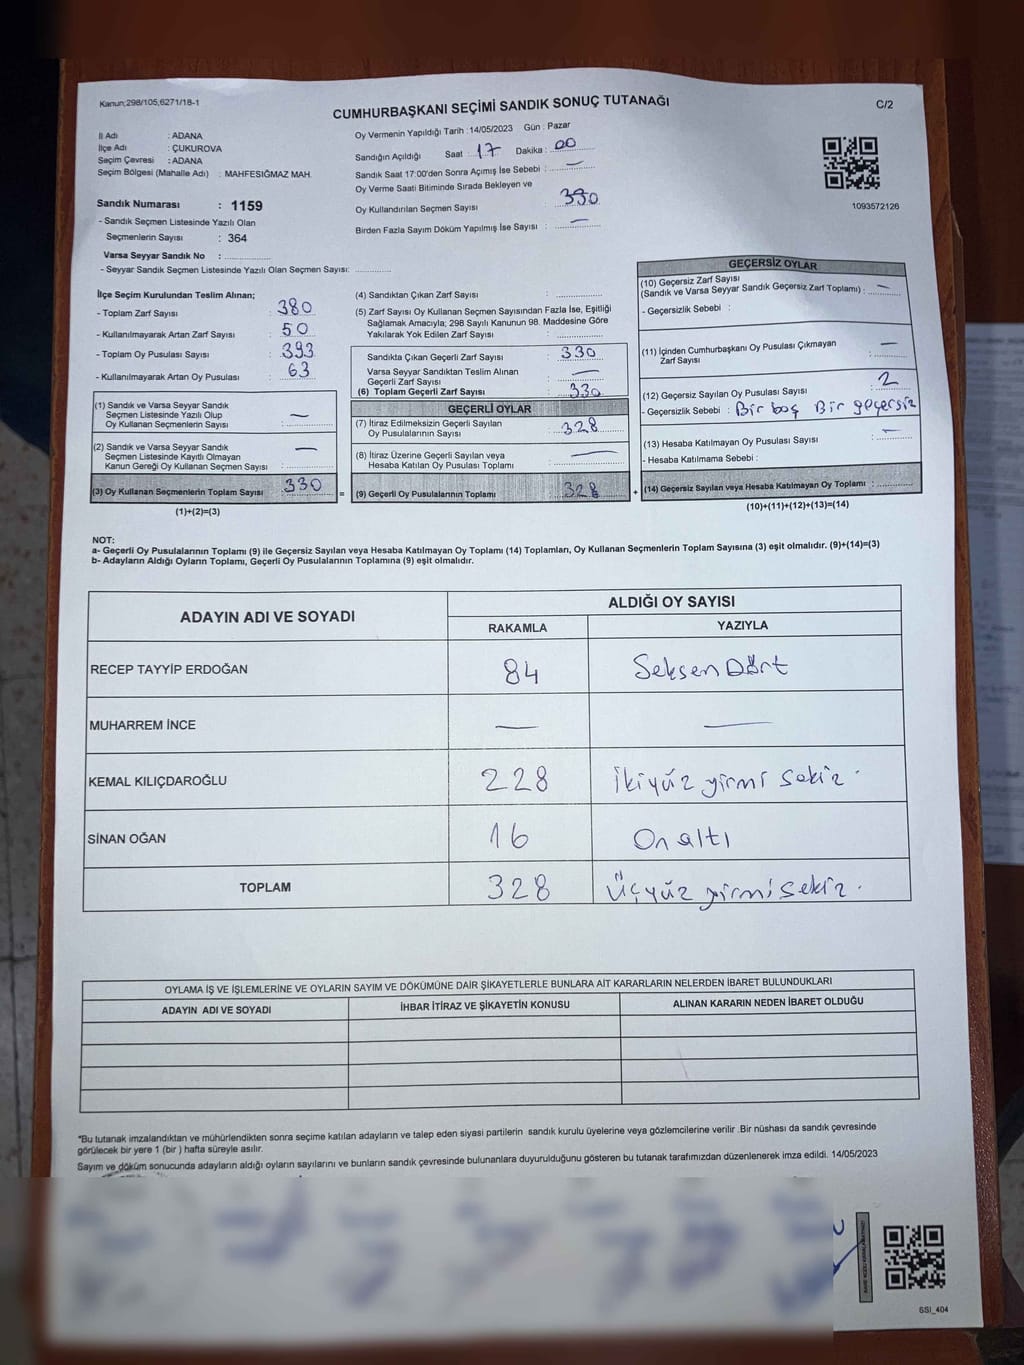 Kanun;298/105,6271/18-1
CUMHURBAŞKANI SEÇİMİ SANDIK SONUÇ TUTANAĞI
C/2
İl Adı : ADANA
İlçe Adı : ÇUKUROVA
Seçim Çevresi : ADANA
Seçim Bölgesi (Mahalle Adı) : MAHFESIĞMAZ MAH.
Sandık Numarası : 1159
- Sandık Seçmen Listesinde Yazılı Olan
Seçmenlerin Sayısı : 364
Varsa Seyyar Sandık No :
- Seyyar Sandık Seçmen Listesinde Yazılı Olan Seçmen Sayısı:
Oy Vermenin Yapıldığı Tarih : 14/05/2023 Gün : Pazar
Sandığın Açıldığı Saat : 17 Dakika : 00
Sandık Saat 17:00'den Sonra Açımış İse Sebebi : —
Oy Verme Saati Bitiminde Sırada Bekleyen ve
Oy Kullandırılan Seçmen Sayısı : 330
Birden Fazla Sayım Döküm Yapılmış İse Sayısı : —
1093572126
İlçe Seçim Kurulundan Teslim Alınan;
- Toplam Zarf Sayısı : 380
- Kullanılmayarak Artan Zarf Sayısı : 50
- Toplam Oy Pusulası Sayısı : 393
- Kullanılmayarak Artan Oy Pusulası : 63
(1) Sandık ve Varsa Seyyar Sandık
Seçmen Listesinde Yazılı Olup
Oy Kullanan Seçmenlerin Sayısı : —
(2) Sandık ve Varsa Seyyar Sandık
Seçmen Listesinde Kayıtlı Olmayan
Kanun Gereği Oy Kullanan Seçmen Sayısı : —
(3) Oy Kullanan Seçmenlerin Toplam Sayısı : 330
(1)+(2)=(3)
=
(4) Sandıktan Çıkan Zarf Sayısı :
(5) Zarf Sayısı Oy Kullanan Seçmen Sayısından Fazla İse, Eşitliği
Sağlamak Amacıyla; 298 Sayılı Kanunun 98. Maddesine Göre
Yakılarak Yok Edilen Zarf Sayısı :
Sandıkta Çıkan Geçerli Zarf Sayısı : 330
Varsa Seyyar Sandıktan Teslim Alınan
Geçerli Zarf Sayısı : —
(6) Toplam Geçerli Zarf Sayısı : 330
GEÇERLİ OYLAR
(7) İtiraz Edilmeksizin Geçerli Sayılan
Oy Pusulalarının Sayısı : 328
(8) İtiraz Üzerine Geçerli Sayılan veya
Hesaba Katılan Oy Pusulası Toplamı : —
(9) Geçerli Oy Pusulalarının Toplamı : 328
+
GEÇERSİZ OYLAR
(10) Geçersiz Zarf Sayısı
(Sandık ve Varsa Seyyar Sandık Geçersiz Zarf Toplamı) : —
- Geçersizlik Sebebi :
(11) İçinden Cumhurbaşkanı Oy Pusulası Çıkmayan
Zarf Sayısı : —
(12) Geçersiz Sayılan Oy Pusulası Sayısı : 2
- Geçersizlik Sebebi : Bir boş Bir geçersiz
(13) Hesaba Katılmayan Oy Pusulası Sayısı : —
- Hesaba Katılmama Sebebi :
(14) Geçersiz Sayılan veya Hesaba Katılmayan Oy Toplamı :
(10)+(11)+(12)+(13)=(14)
NOT:
a- Geçerli Oy Pusulalarının Toplamı (9) ile Geçersiz Sayılan veya Hesaba Katılmayan Oy Toplamı (14) Toplamları, Oy Kullanan Seçmenlerin Toplam Sayısına (3) eşit olmalıdır. (9)+(14)=(3)
b- Adayların Aldığı Oyların Toplamı, Geçerli Oy Pusulalarının Toplamına (9) eşit olmalıdır.
ADAYIN ADI VE SOYADI
ALDIĞI OY SAYISI
RAKAMLA YAZIYLA
RECEP TAYYİP ERDOĞAN 84 Seksen Dört
MUHARREM İNCE — —
KEMAL KILIÇDAROĞLU 228 İkiyüz yirmi sekiz.
SİNAN OĞAN 16 On altı
TOPLAM 328 Üçyüz yirmi sekiz.
OYLAMA İŞ VE İŞLEMLERİNE VE OYLARIN SAYIM VE DÖKÜMÜNE DAİR ŞİKAYETLERLE BUNLARA AİT KARARLARIN NELERDEN İBARET BULUNDUKLARI
ADAYIN ADI VE SOYADI İHBAR İTİRAZ VE ŞİKAYETİN KONUSU ALINAN KARARIN NEDEN İBARET OLDUĞU
*Bu tutanak imzalandıktan ve mühürlendikten sonra seçime katılan adayların ve talep eden siyasi partilerin sandık kurulu üyelerine veya gözlemcilerine verilir .Bir nüshası da sandık çevresinde
görülecek bir yere 1 (bir ) hafta süreyle asılır.
Sayım ve döküm sonucunda adayların aldığı oyların sayılarını ve bunların sandık çevresinde bulunanlara duyurulduğunu gösteren bu tutanak tarafımızdan düzenlenerek imza edildi. 14/05/2023
SSI_404